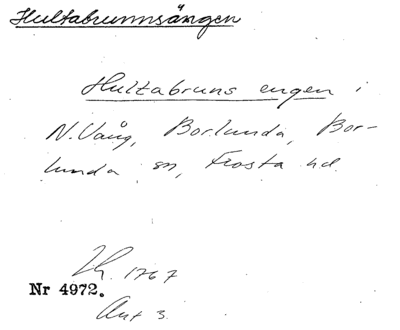 Hultabrunnsängen
Hultabruns engen i
N. Vång, Borlunda, Bor-
lunda sn, Frosta hd.
Lh. 1767
Nr 4972.
Aut 3.